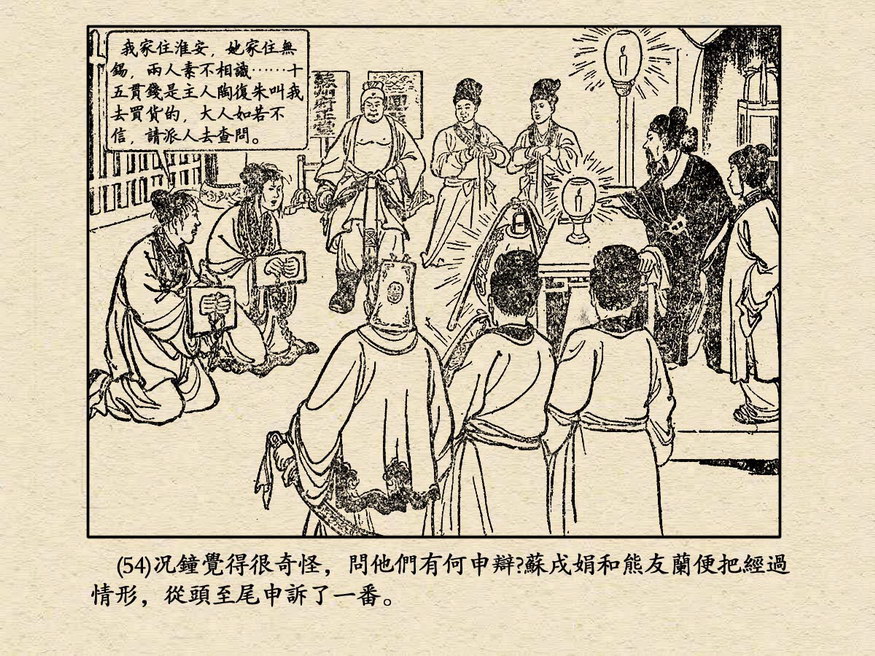 我家住淮安，她家住無
錫，兩人素不相識……十
五貫錢是主人陶復朱叫我
去買貨的，大人如若不
信，請派人去查問。
蘇州府正堂
(54)况鐘覺得很奇怪，問他們有何申辯?蘇戌娟和熊友蘭便把經過
情形，從頭至尾申訴了一番。